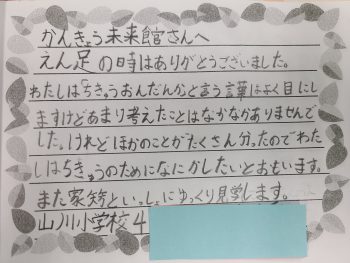 かんきょう未来館さんへ
えん足の時はありがとうございました。
わたしは「ちきゅうおんだんか」と言う言葉はよく目にし
ますけどあまり考えたことはなかなかありませんで
した。けれどほかのことがたくさん分ったのでわた
しはちきゅうのためになにかしたいとおもいます。
また家族といっしょにゆっくり見学します。
山ノ川小学校4